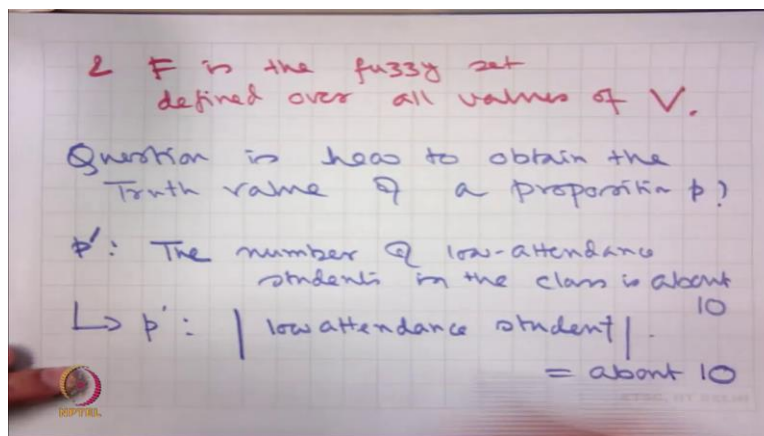 & F is the fuzzy set
defined over all values of V.
Question is how to obtain the
Truth value of a proposition p?
p': The number of low-attendance
students in the class is about
10
↳ p': | low attendance student |.
= about 10
NPTEL